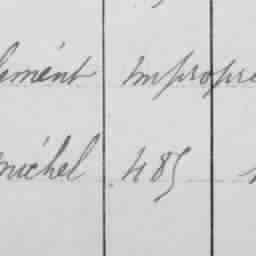 lément impropre
michel 485